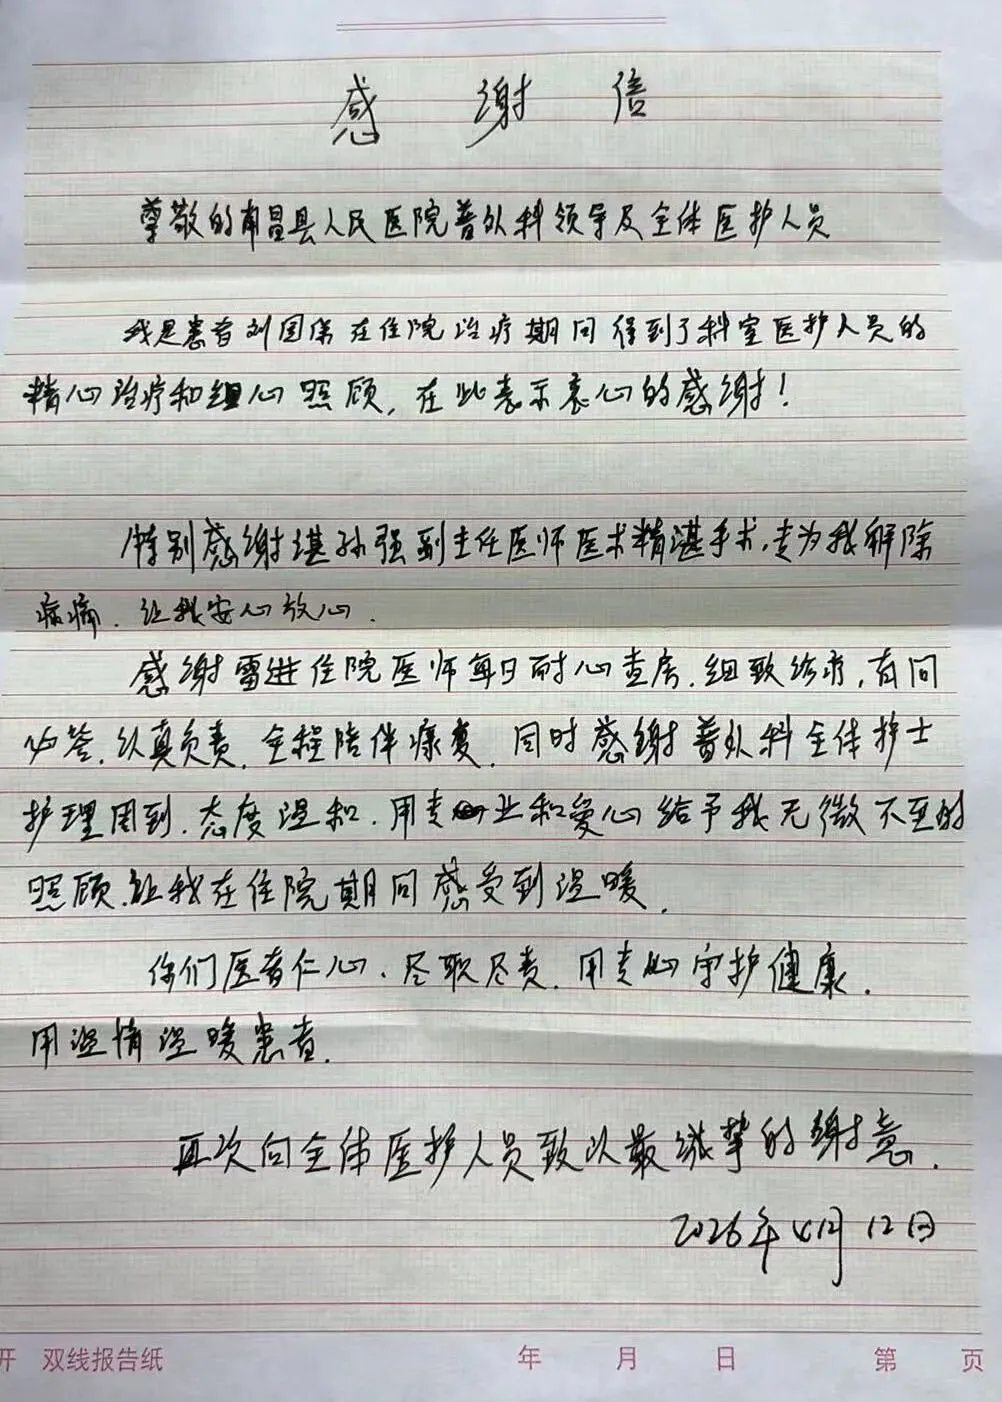 感谢信
尊敬的南昌县人民医院普外科领导及全体医护人员
我是患者刘国保在住院治疗期间得到了科室医护人员的
精心治疗和细心照顾,在此表示衷心的感谢!
特别感谢谌孙强副主任医师医术精湛手术,专为我解除
病痛.让我安心放心.
感谢雷进住院医师每日耐心查房.细致诊疗,有问
必答.认真负责.全程陪伴康复.同时感谢普外科全体护士
护理周到.态度温和.用专业和爱心给予我无微不至的
照顾.让我在住院期间感受到温暖.
你们医者仁心.尽职尽责.用专心守护健康.
用温情温暖患者.
再次向全体医护人员致以最诚挚的谢意.
2026年4月12日
开 双线报告纸 年 月 日 第 页